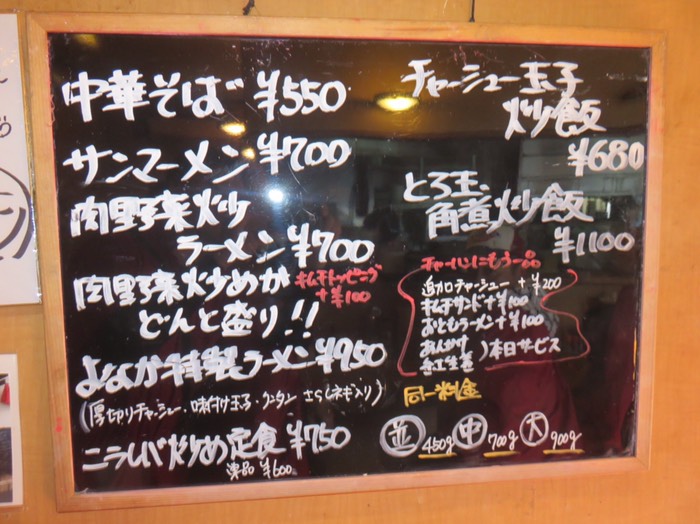 中華そば ¥550
サンマーメン ¥700
肉野菜炒
ラーメン ¥700
肉野菜炒めが
どんと盛り!!
キムチトッピング
+¥100
特製ラーメン ¥950
(厚切りチャーシュー・味付け玉子・ワンタン さらしネギ入り)
ニラレバ炒め定食 ¥750
単品 ¥600
チャーシュー玉子
炒飯
¥680
とろ玉、
角煮炒飯
¥1100
チャーハンにもう一品
追加チャーシュー +¥200
キムチサンド +¥100
おともラーメン +¥100
あんかけ
紅生姜
)本日サービス
同一料金
並 450g 中 700g 大 900g